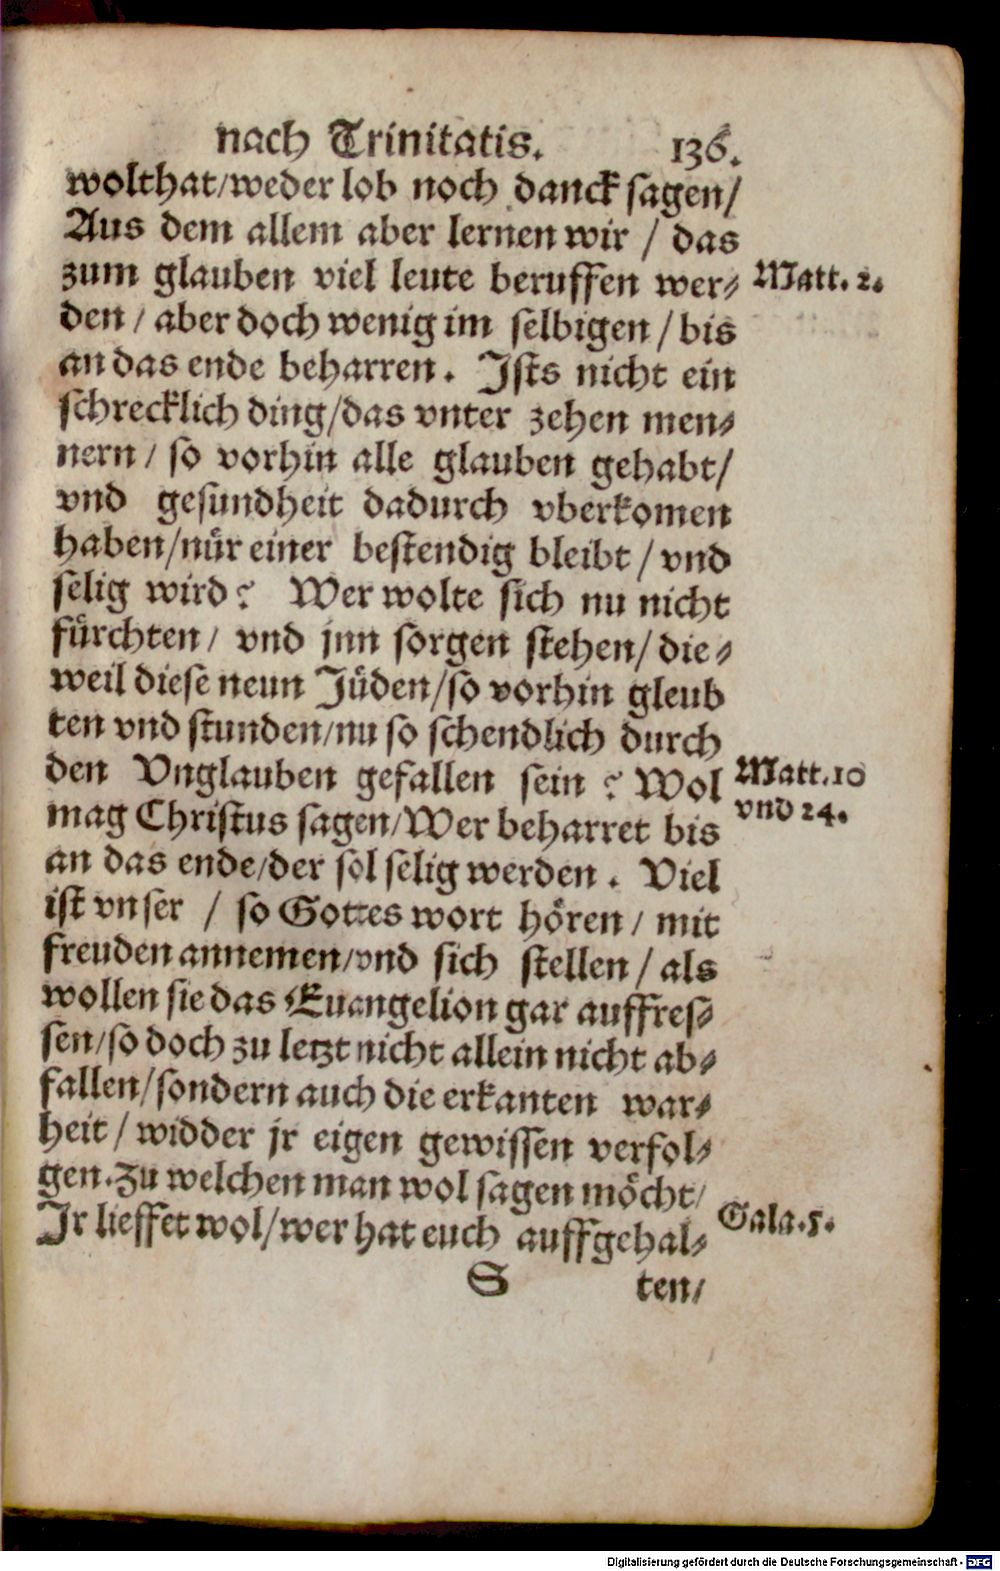 nach Trinitatis. 136.
wolthat/weder lob noch danck sagen/
Aus dem allem aber lernen wir / das
zum glauben viel leute beruffen wer⸗ Matt. 2.
den / aber doch wenig im selbigen / bis
an das ende beharren. Ists nicht ein
schrecklich ding/das vnter zehen men⸗
nern / so vorhin alle glauben gehabt/
vnd gesundheit dadurch vberkomen
haben/nür einer bestendig bleibt / vnd
selig wird? Wer wolte sich nu nicht
fürchten / vnd jnn sorgen stehen/ die⸗
weil diese neun Jüden/so vorhin gleub
ten vnd stunden/nu so schendlich durch
den Vnglauben gefallen sein ? Wol Matt.10
mag Christus sagen/Wer beharret bis vnd 24.
an das ende/der sol selig werden. Viel
ist vnser / so Gottes wort hören / mit
freuden annemen/vnd sich stellen / als
wollen sie das Euangelion gar auffres⸗
sen/so doch zu letzt nicht allein nicht ab⸗
fallen/sondern auch die erkanten war⸗
heit / widder jr eigen gewissen verfol⸗
gen.Zu welchen man wol sagen möcht/
Jr lieffet wol/wer hat euch auffgehal⸗ Gala.5.
S ten/
Digitalisierung gefördert durch die Deutsche Forschungsgemeinschaft - DFG